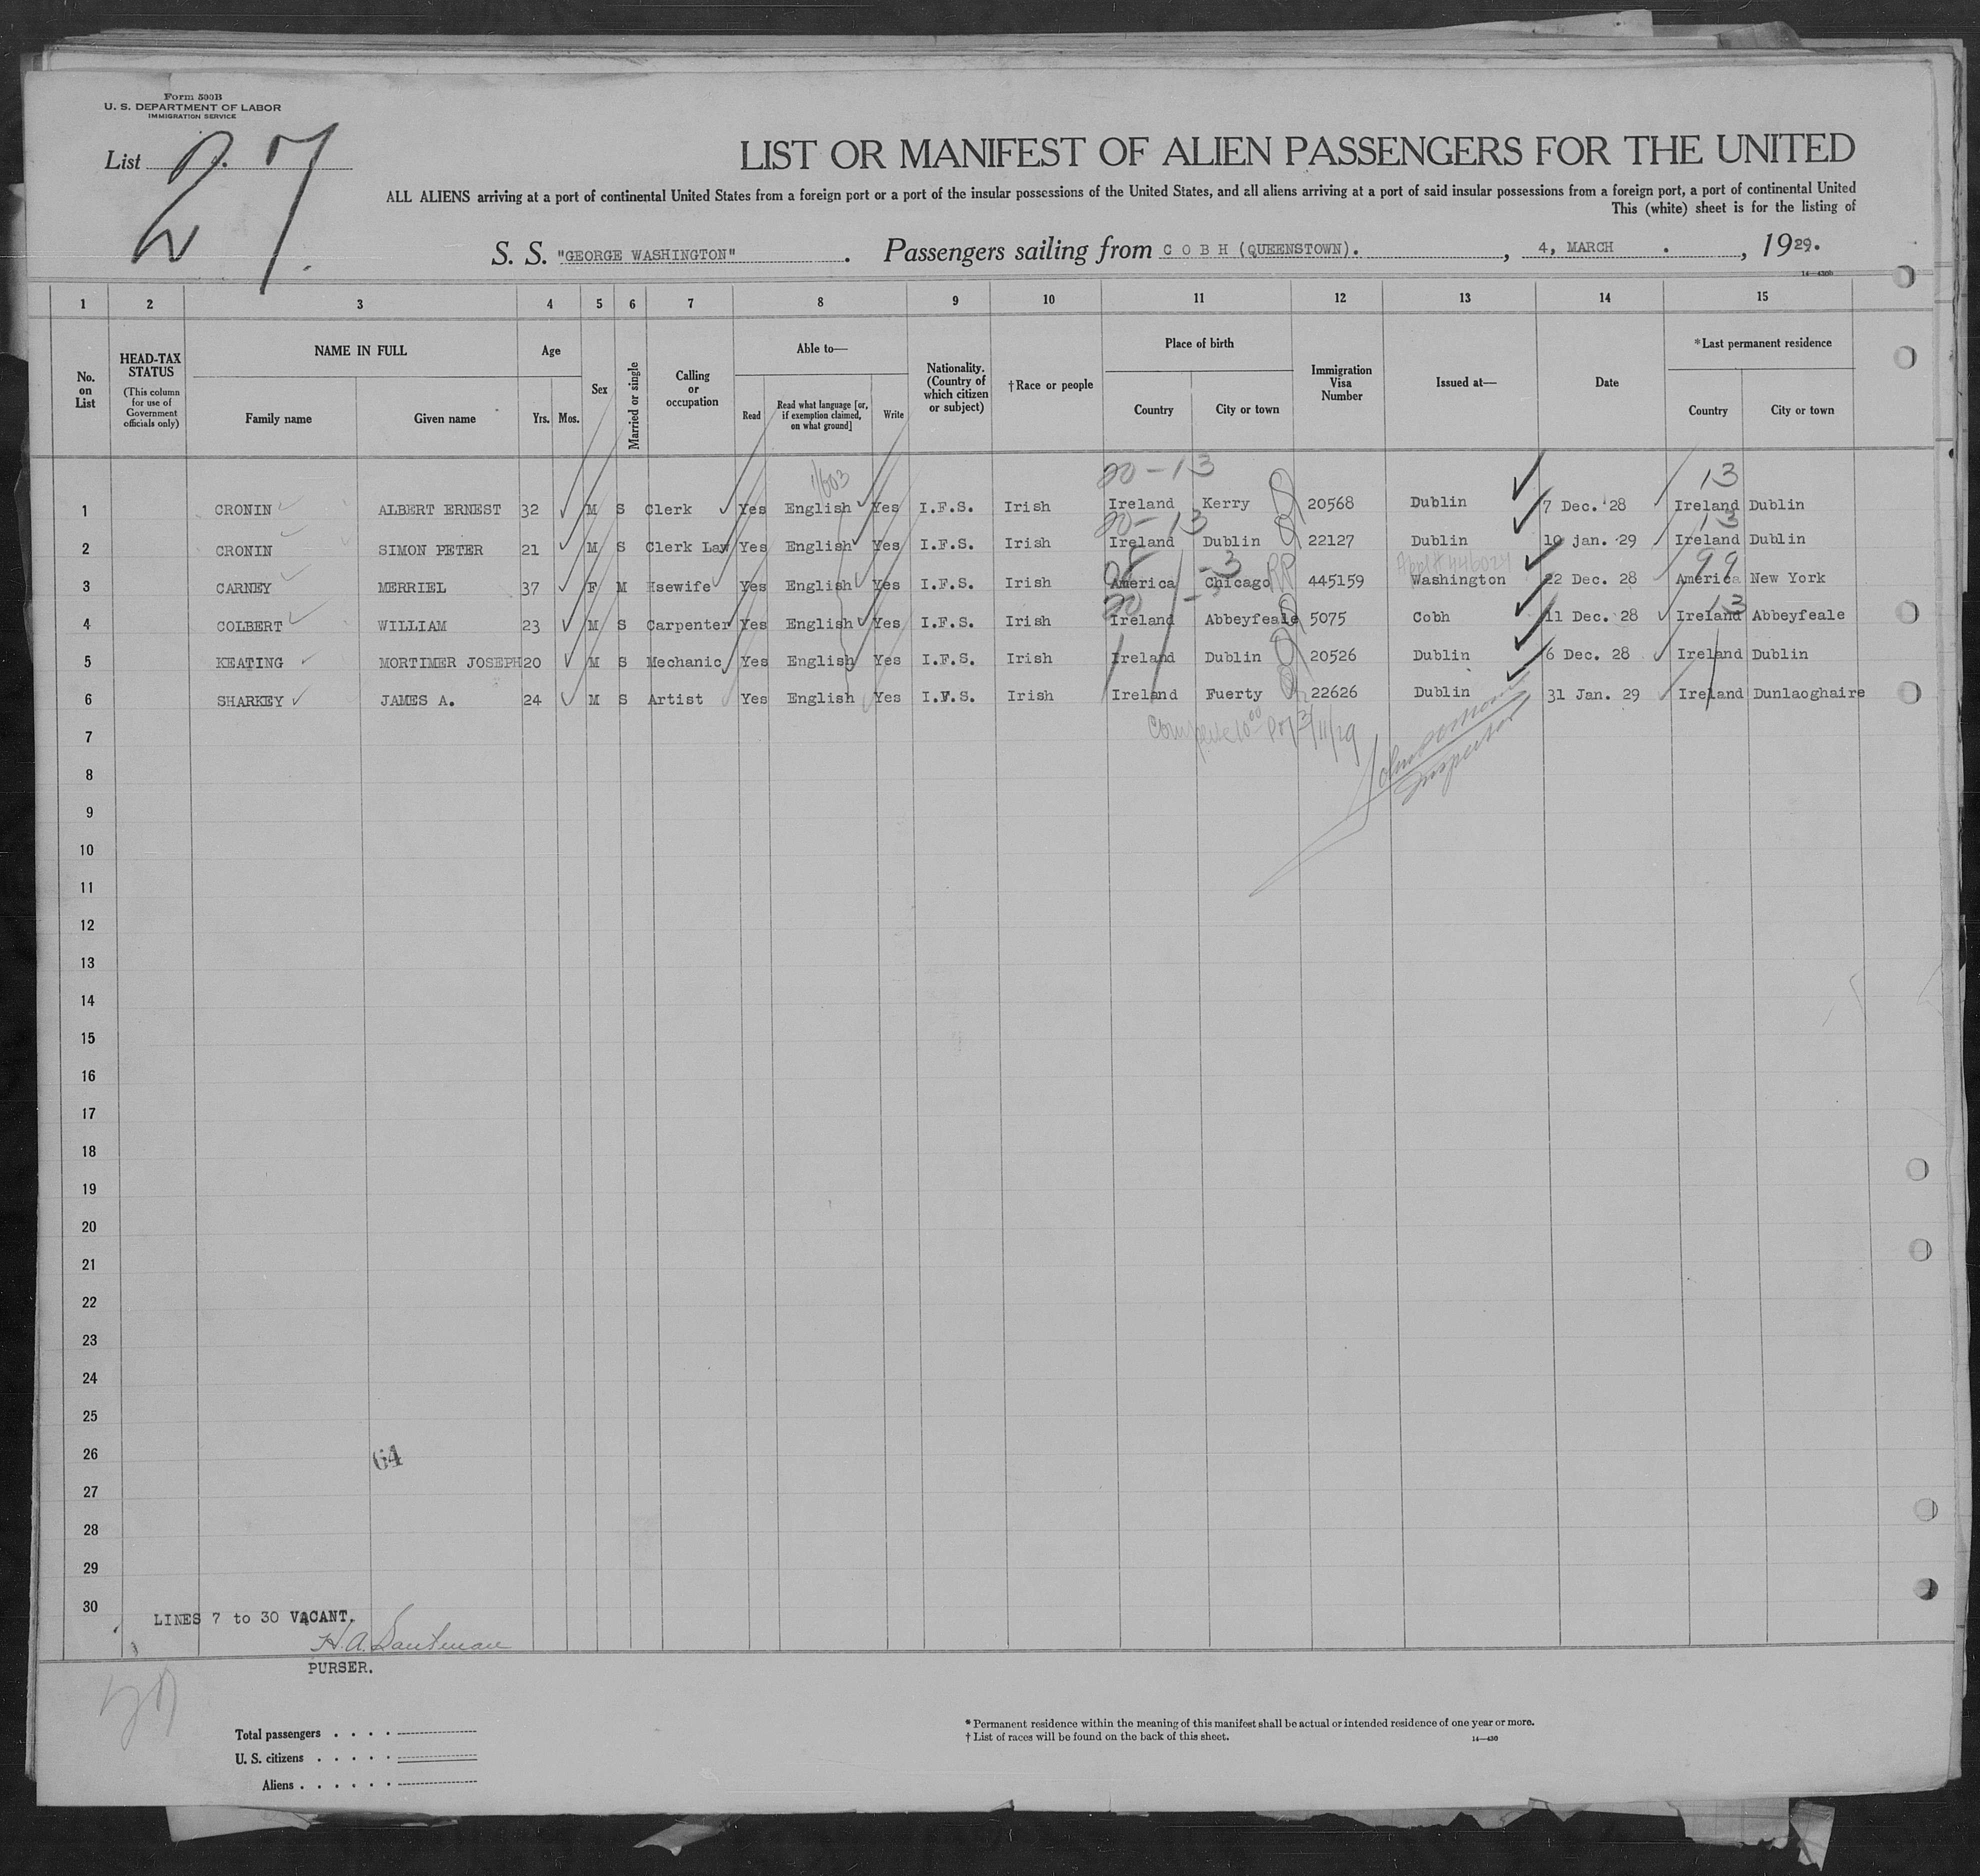 Form 500B
U. S. DEPARTMENT OF LABOR
IMMIGRATION SERVICE
List 27
LIST OR MANIFEST OF ALIEN PASSENGERS FOR THE UNITED
ALL ALIENS arriving at a port of continental United States from a foreign port or a port of the insular possessions of the United States, and all aliens arriving at a port of said insular possessions from a foreign port, a port of continental United
This (white) sheet is for the listing of
S. S. "GEORGE WASHINGTON" . Passengers sailing from C O B H (QUEENSTOWN). , 4, MARCH . , 1929.
1 2 3 4 5 6 7 8 9 10 11 12 13 14 15
No. on List
HEAD-TAX STATUS
(This column for use of Government officials only)
NAME IN FULL
Family name Given name
Age
Yrs. Mos.
Sex
Married or single
Calling or occupation
Able to—
Read
Read what language [or, if exemption claimed, on what ground]
Write
Nationality. (Country of which citizen or subject)
†Race or people
Place of birth
Country City or town
Immigration Visa Number
Issued at—
Date
*Last permanent residence
Country City or town
20-13 13
1 CRONIN ALBERT ERNEST 32 M S Clerk Yes English Yes I.F.S. Irish Ireland Kerry 20568 Dublin 7 Dec. 28 Ireland Dublin
20-13 13
2 CRONIN SIMON PETER 21 M S Clerk Law Yes English Yes I.F.S. Irish Ireland Dublin 22127 Dublin 10 jan. 29 Ireland Dublin
99
3 CARNEY MERRIEL 37 F M Hsewife Yes English Yes I.F.S. Irish America Chicago 445159 Washington 22 Dec. 28 America New York
20 13
4 COLBERT WILLIAM 23 M S Carpenter Yes English Yes I.F.S. Irish Ireland Abbeyfeale 5075 Cobh 11 Dec. 28 Ireland Abbeyfeale
5 KEATING MORTIMER JOSEPH 20 M S Mechanic Yes English Yes I.F.S. Irish Ireland Dublin 20526 Dublin 6 Dec. 28 Ireland Dublin
6 SHARKEY JAMES A. 24 M S Artist Yes English Yes I.F.S. Irish Ireland Fuerty 22626 Dublin 31 Jan. 29 Ireland Dunlaoghaire
7
Inspector
8
9
10
11
12
13
14
15
16
17
18
19
20
21
22
23
24
25
26 64
27
28
29
30
LINES 7 to 30 VACANT.
H. A.
PURSER.
Total passengers . . . .
U. S. citizens . . . . .
Aliens . . . . . .
* Permanent residence within the meaning of this manifest shall be actual or intended residence of one year or more.
† List of races will be found on the back of this sheet.
14—430